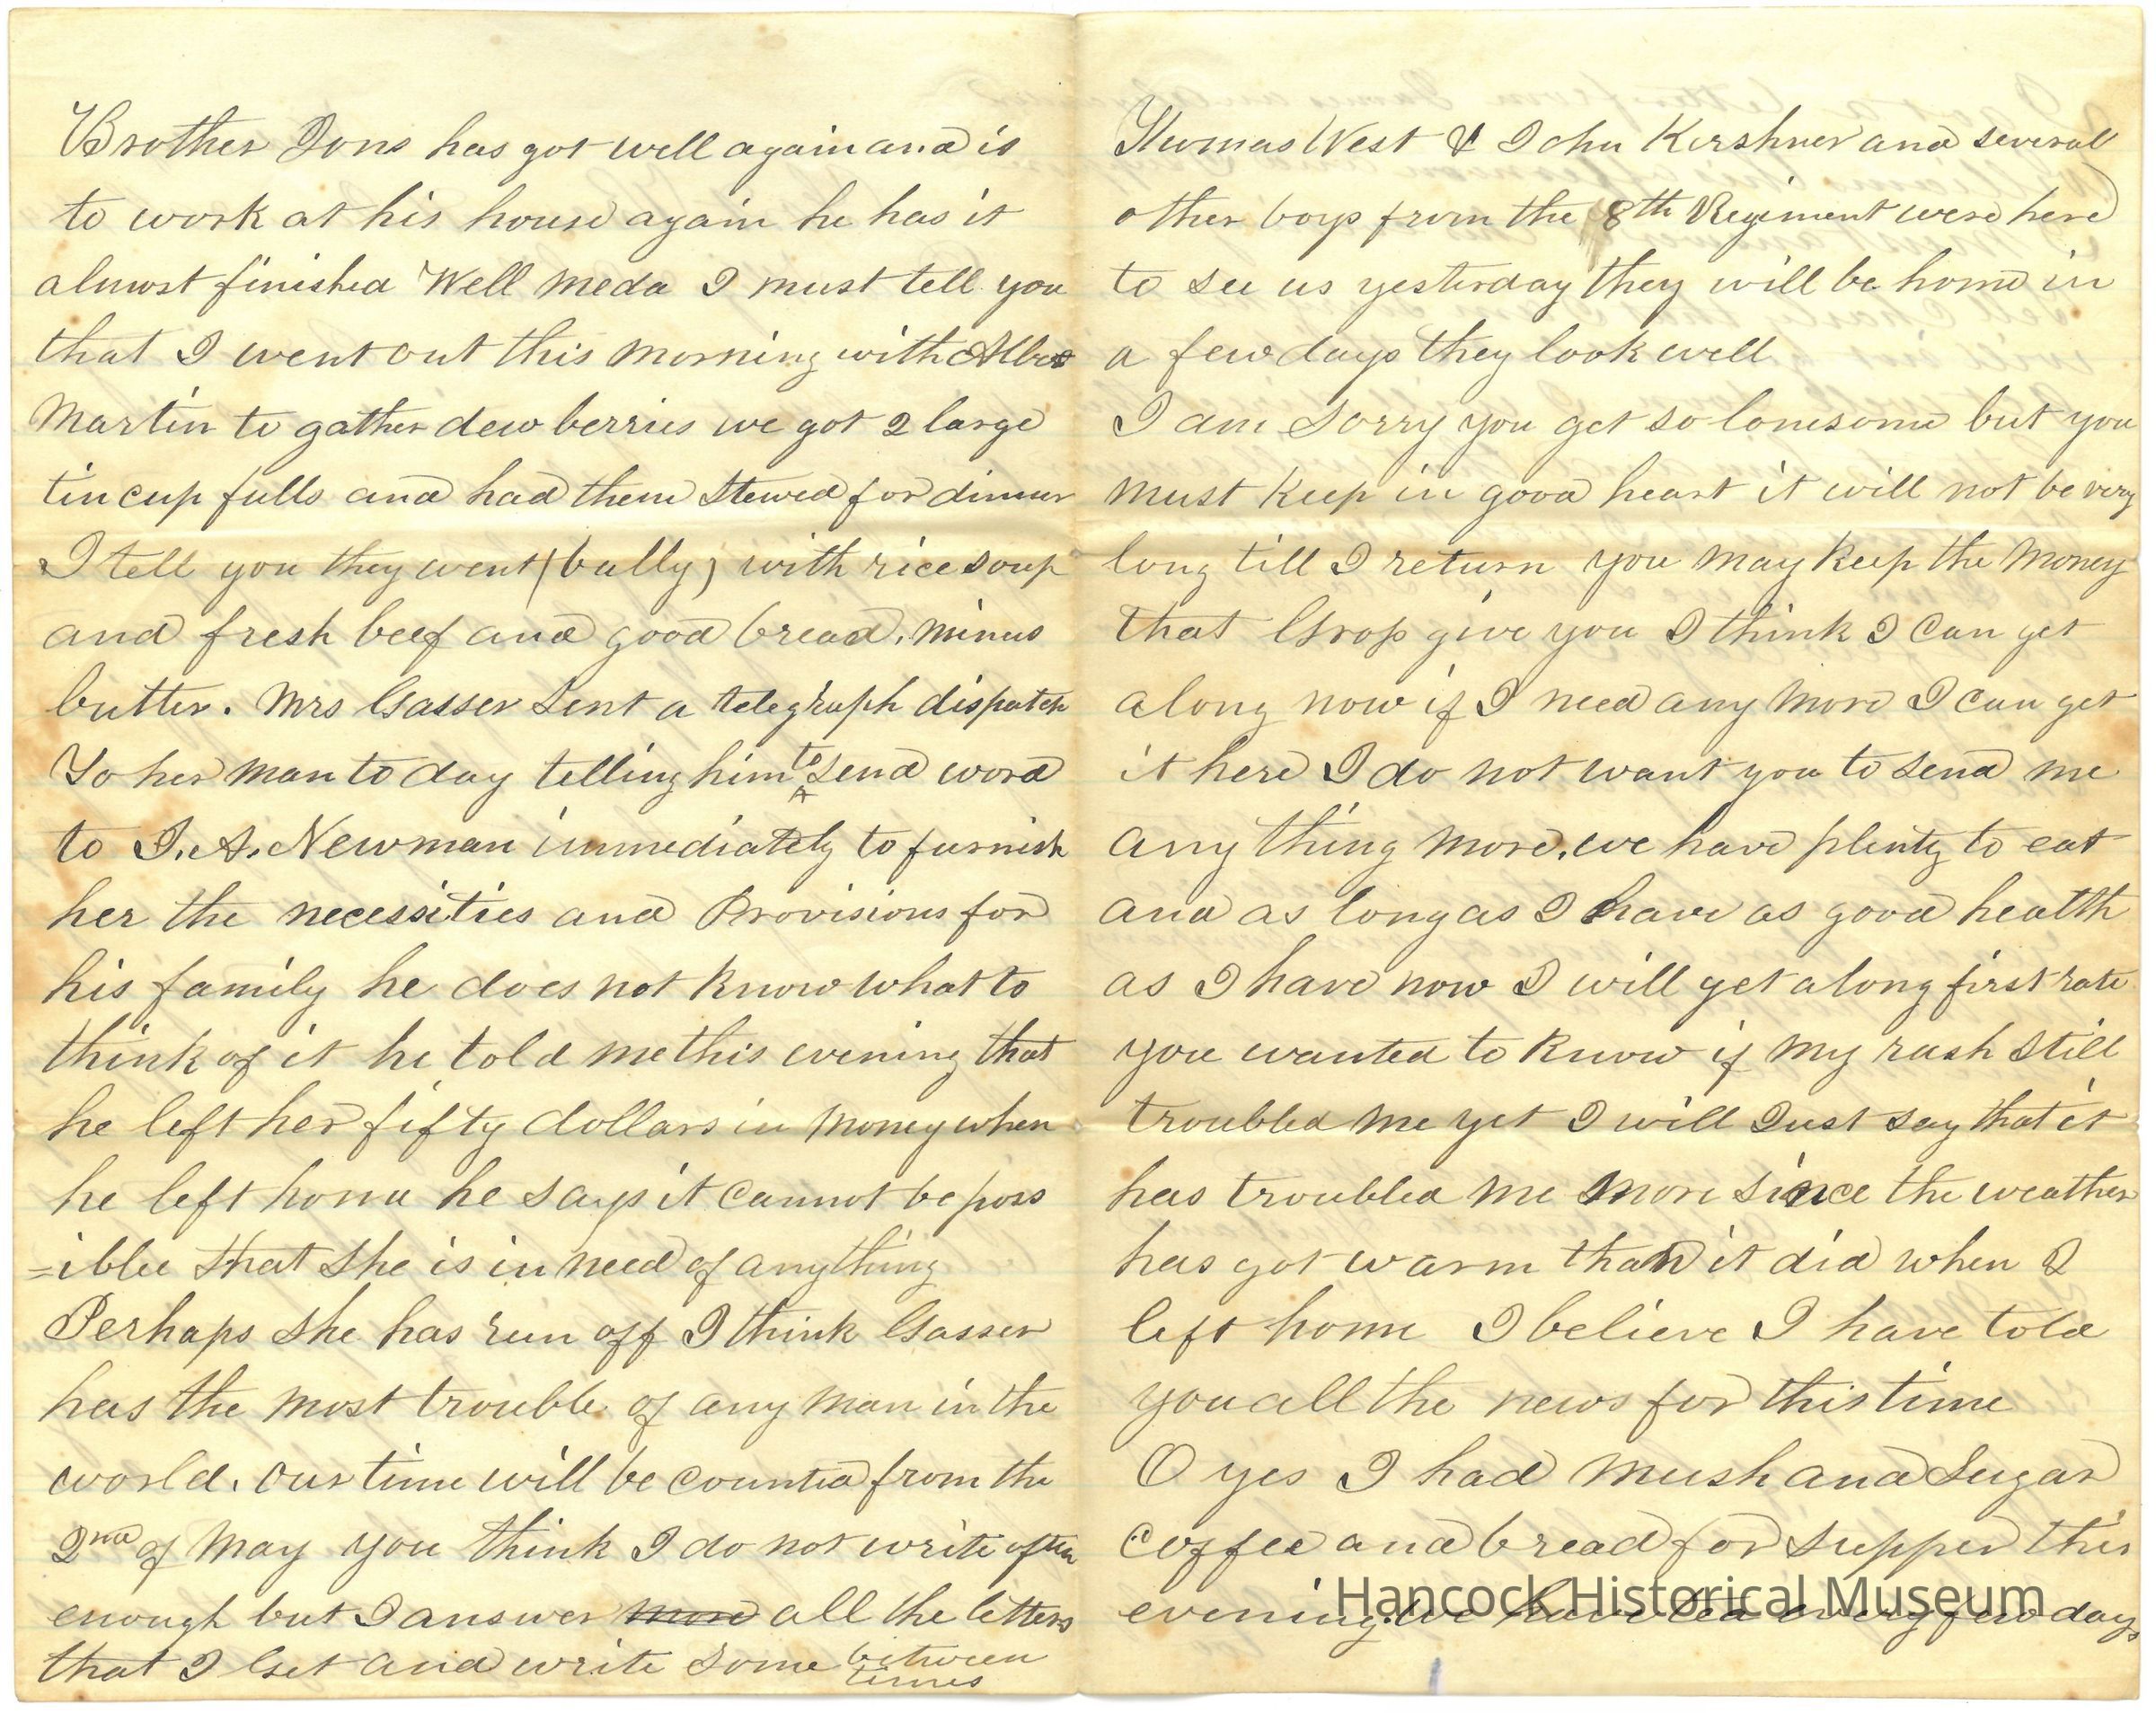 Brother Jons has got well again and is
to work at his house again he has it
almost finished Well Meda I must tell you
that I went out this morning with
Martin to gather dew berries we got 2 large
tin cup fulls and had them stewed for dinner
I tell you they went (bully) with rice soup
and fresh beef and good bread, minus
butter. Mrs Gasser sent a telegraph dispatch
To her man to day telling him to send word
to J. A. Newman immediately to furnish
her the necessities and Provisions for
his family he does not know what to
think of it he told me this evening that
he left her fifty dollars in money when
he left home he says it cannot be poss
=ible that she is in need of anything
Perhaps she has run off I think Gasser
has the most trouble of any man in the
world. Our time will be counted from the
2nd of May you think I do not write often
enough but I answer more all the letters
that I Get and write some between
times
Thomas West & John Kershner and several
other boys from the 8th Regiment were here
to see us yesterday they will be home in
a few days they look well
I am Sorry you get so lonesome but you
must keep in good heart it will not be very
long till I return you may keep the money
that Gross give you I think I can get
along now if I need any more I can get
it here I do not want you to send me
any thing more, we have plenty to eat
and as long as I have as good health
as I have now I will get along first rate
you wanted to know if my rash still
troubled me yet I will Just say that it
has troubled me more since the weather
has got warm than it did when I
left home I believe I have told
you all the news for this time
O yes I had mush and Sugar
coffee and bread for supper this
evening. We have tea every few days
Hancock Historical Museum